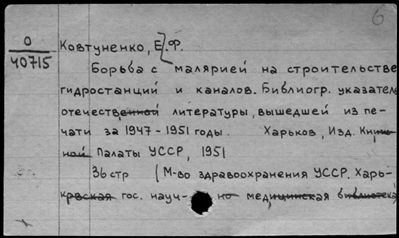 6
О
40715
Ковтуненко, Е.Ф.
Борьба с малярией на строительстве
гидростанций и каналов. Библиогр. указатель
отечественной литературы, вышедшей из пе-
чати за 1947-1951 годы. Харьков, Изд. Книж-
ной Палаты УССР, 1951
36 стр (М-во здравоохранения УССР. Харь-
ковская гос. науч- но медицинская библиотека